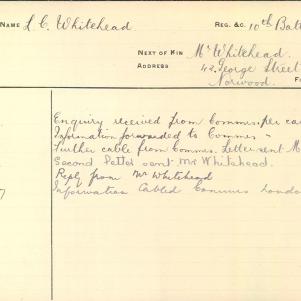 NAME L C Whitehead REG. &C. 10th Batt
NEXT OF KIN Mr Whitehead.
ADDRESS 42 George Street
Norwood
Enquiry received from Commis: per ca
Information forwarded to Commes -
Further cable from Commes. Letter sent M
Second letter sent Mr Whitehead.
Reply from Mr Whitehead
7 Information Cabled Commrs London